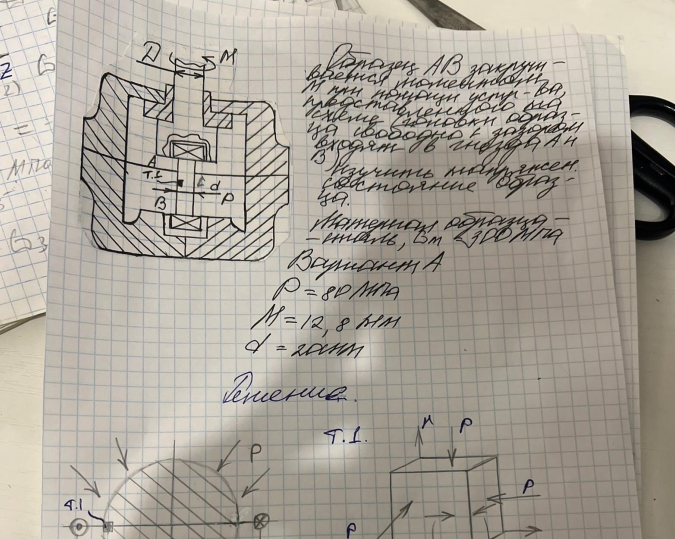 D M
Образец АВ закручи-
вается моментом
М при помощи устр-ва,
представленного на
схеме. Головки образ-
ца свободно с зазором
входят в гнезда А и
В
Изучить напряжен.
состояние образ-
ца.
Материал образца -
- сталь,
Вариант А
P = 80 МПа
М = 12,8
d = 20мм
Решение.
А
т.1
d
В
P
т.1.
М P
P
P
т.1
P
МПа